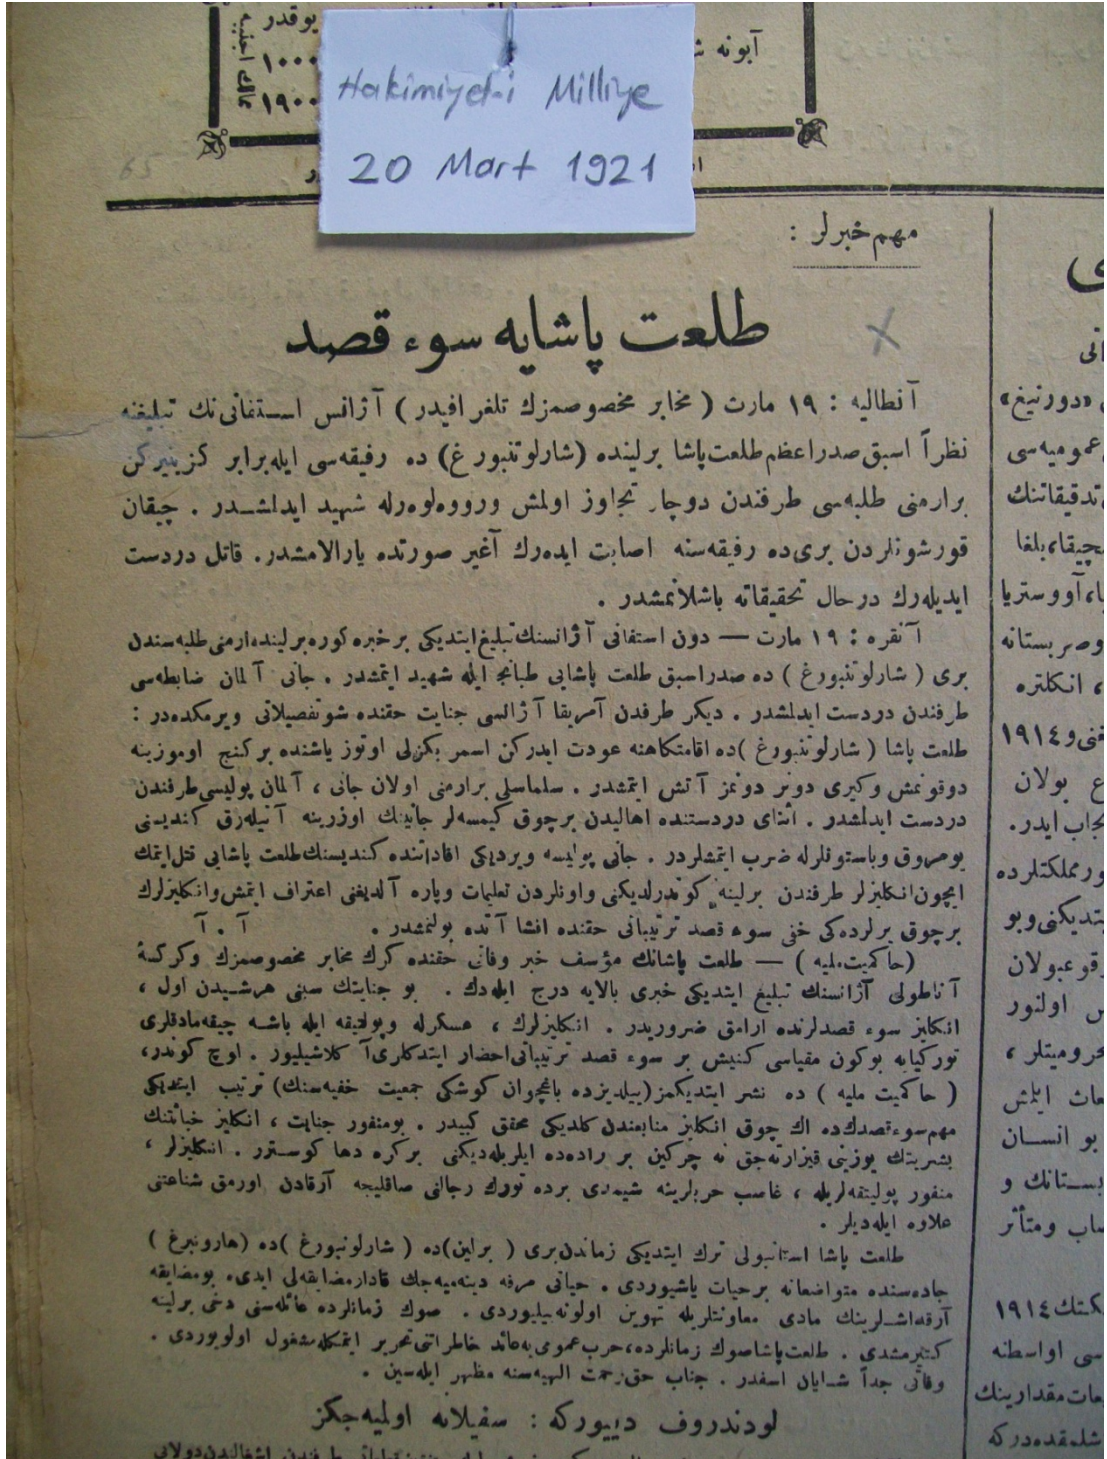 يوقدر
١٠٠٠
١٩٠٠
آبونه
Hakimiyet-i Milliye
20 Mart 1921
65
مهم خبرلر :
طلعت پاشايه سوء قصد
آنطاليه : ١٩ مارت ( مخابر مخصوصمزك تلغرافيدر ) آژانس استفانى نك تبليغنه
نظراً اسبق صدراعظم طلعت پاشا برلينده (شارلوتنبورغ) ده رفيقه‌سى ايله برابر كزينيركن
برارمنى طلبه‌سى طرفندن دوچار تجاوز اولمش ورووه‌لوه‌رله شهيد ايدلمشدر . چيقان
قورشونلردن برى ده رفيقه‌سنه اصابت ايده‌رك آغير صورتده يارالامشدر. قاتل دردست
ايديله‌رك درحال تحقيقاته باشلانمشدر .
آنقره : ١٩ مارت — دون استفانى آژانسنك تبليغ ايتديكى برخبره كوره برلينده ارمنى طلبه‌سندن
برى ( شارلوتنبورغ ) ده صدراسبق طلعت پاشايى طبانجه ايله شهيد ايتمشدر . جانى آلمان ضابطه‌سى
طرفندن دردست ايدلمشدر . ديكر طرفدن آمريقا آژانسى جنايت حقنده شوتفصيلاتى ويرمكده‌در :
طلعت پاشا ( شارلوتنبورغ )ده اقامتكاهنه عودت ايدركن اسمر بكزلى اوتوز ياشنده بركنج اوموزينه
دوقونمش وكيرى دونر دونمز آتش ايتمشدر . سلماسلى برارمنى اولان جانى ، آلمان پوليسى طرفندن
دردست ايدلمشدر . اثناى دردستنده اهاليدن برچوق كيمسه‌لر جانينك اوزرينه آتيله‌رق كنديسنى
يومروق وباستونلرله ضرب ايتمشلردر . جانى پوليسه ويرديكى افاداتنده كنديسنك طلعت پاشايى قتل ايتمك
ايچون انكليزلر طرفندن برلينه كوندرلديكنى واونلردن تعليمات وپاره آلديغنى اعتراف ايتمش وانكليزلرك
برچوق يرلرده‌كى خفى سوء قصد ترتيباتى حقنده افشا آتده بولنمشدر . آ . آ
(حاكميت مليه ) — طلعت پاشانك مؤسف خبر وفاتى حقنده كرك مخابر مخصوصمزك وكركسه
آناطولى آژانسنك تبليغ ايتديكى خبرى بالايه درج ايله‌دك . بو جنايتك سببنى هرشيدن اول ،
انكليز سوء قصدلرنده ارامق ضروريدر . انكليزلرك ، عسكرله وپوليتيقه ايله باشه چيقه‌مادقلرى
توركيايه بوكون مقياسى كنيش بر سوء قصد ترتيباتى احضار ايتدكلرى آكلاشيليور . اوچ كوندر،
( حاكميت مليه ) ده نشر ايتديكمز (ييلديزده باغچوان كوشكى جمعيت خفيه‌سنك) ترتيب ايتديكى
مهم سوء قصدك ده اك چوق انكليز منابعندن كلديكى محقق كبيدر . بومنفور جنايت ، انكليز خباثتنك
بشريتك يوزينى قيزارته‌جق نه چركين بر راده‌ده ايلريله‌ديكنى بركره دها كوسترر . انكليزلر ،
منفور پوليتقه‌لريله ، غاصب حربلرينه شيمدى برده تورك رجالنى صاقليجه آرقادن اورمق شناعتنى
علاوه ايله‌ديلر .
طلعت پاشا استانبولى ترك ايتديكى زماندن برى ( برلين)ده ( شارلوتنبورغ )ده (هاردنبرغ )
جاده‌سنده متواضعانه برحيات ياشيوردى . حياتى مرفه دينه‌ميه‌جك قادار مضايقه‌لى ايدى، بومضايقه
آرقداشلرينك مادى معاونتلريله تهوين اولونه بيليوردى . صوك زمانلرده عائله‌سنى دخى برلينه
كتيرمشدى . طلعت پاشا صوك زمانلرده، حرب عمومى يه عائد خاطراتنى تحرير ايتمكله مشغول اولويوردى .
وفاتى جداً شايان اسفدر . جناب حق رحمت الهيه‌سنه مظهر ايله‌سين .
لودندروف دييوركه : سفيلانه اولميه‌جكز